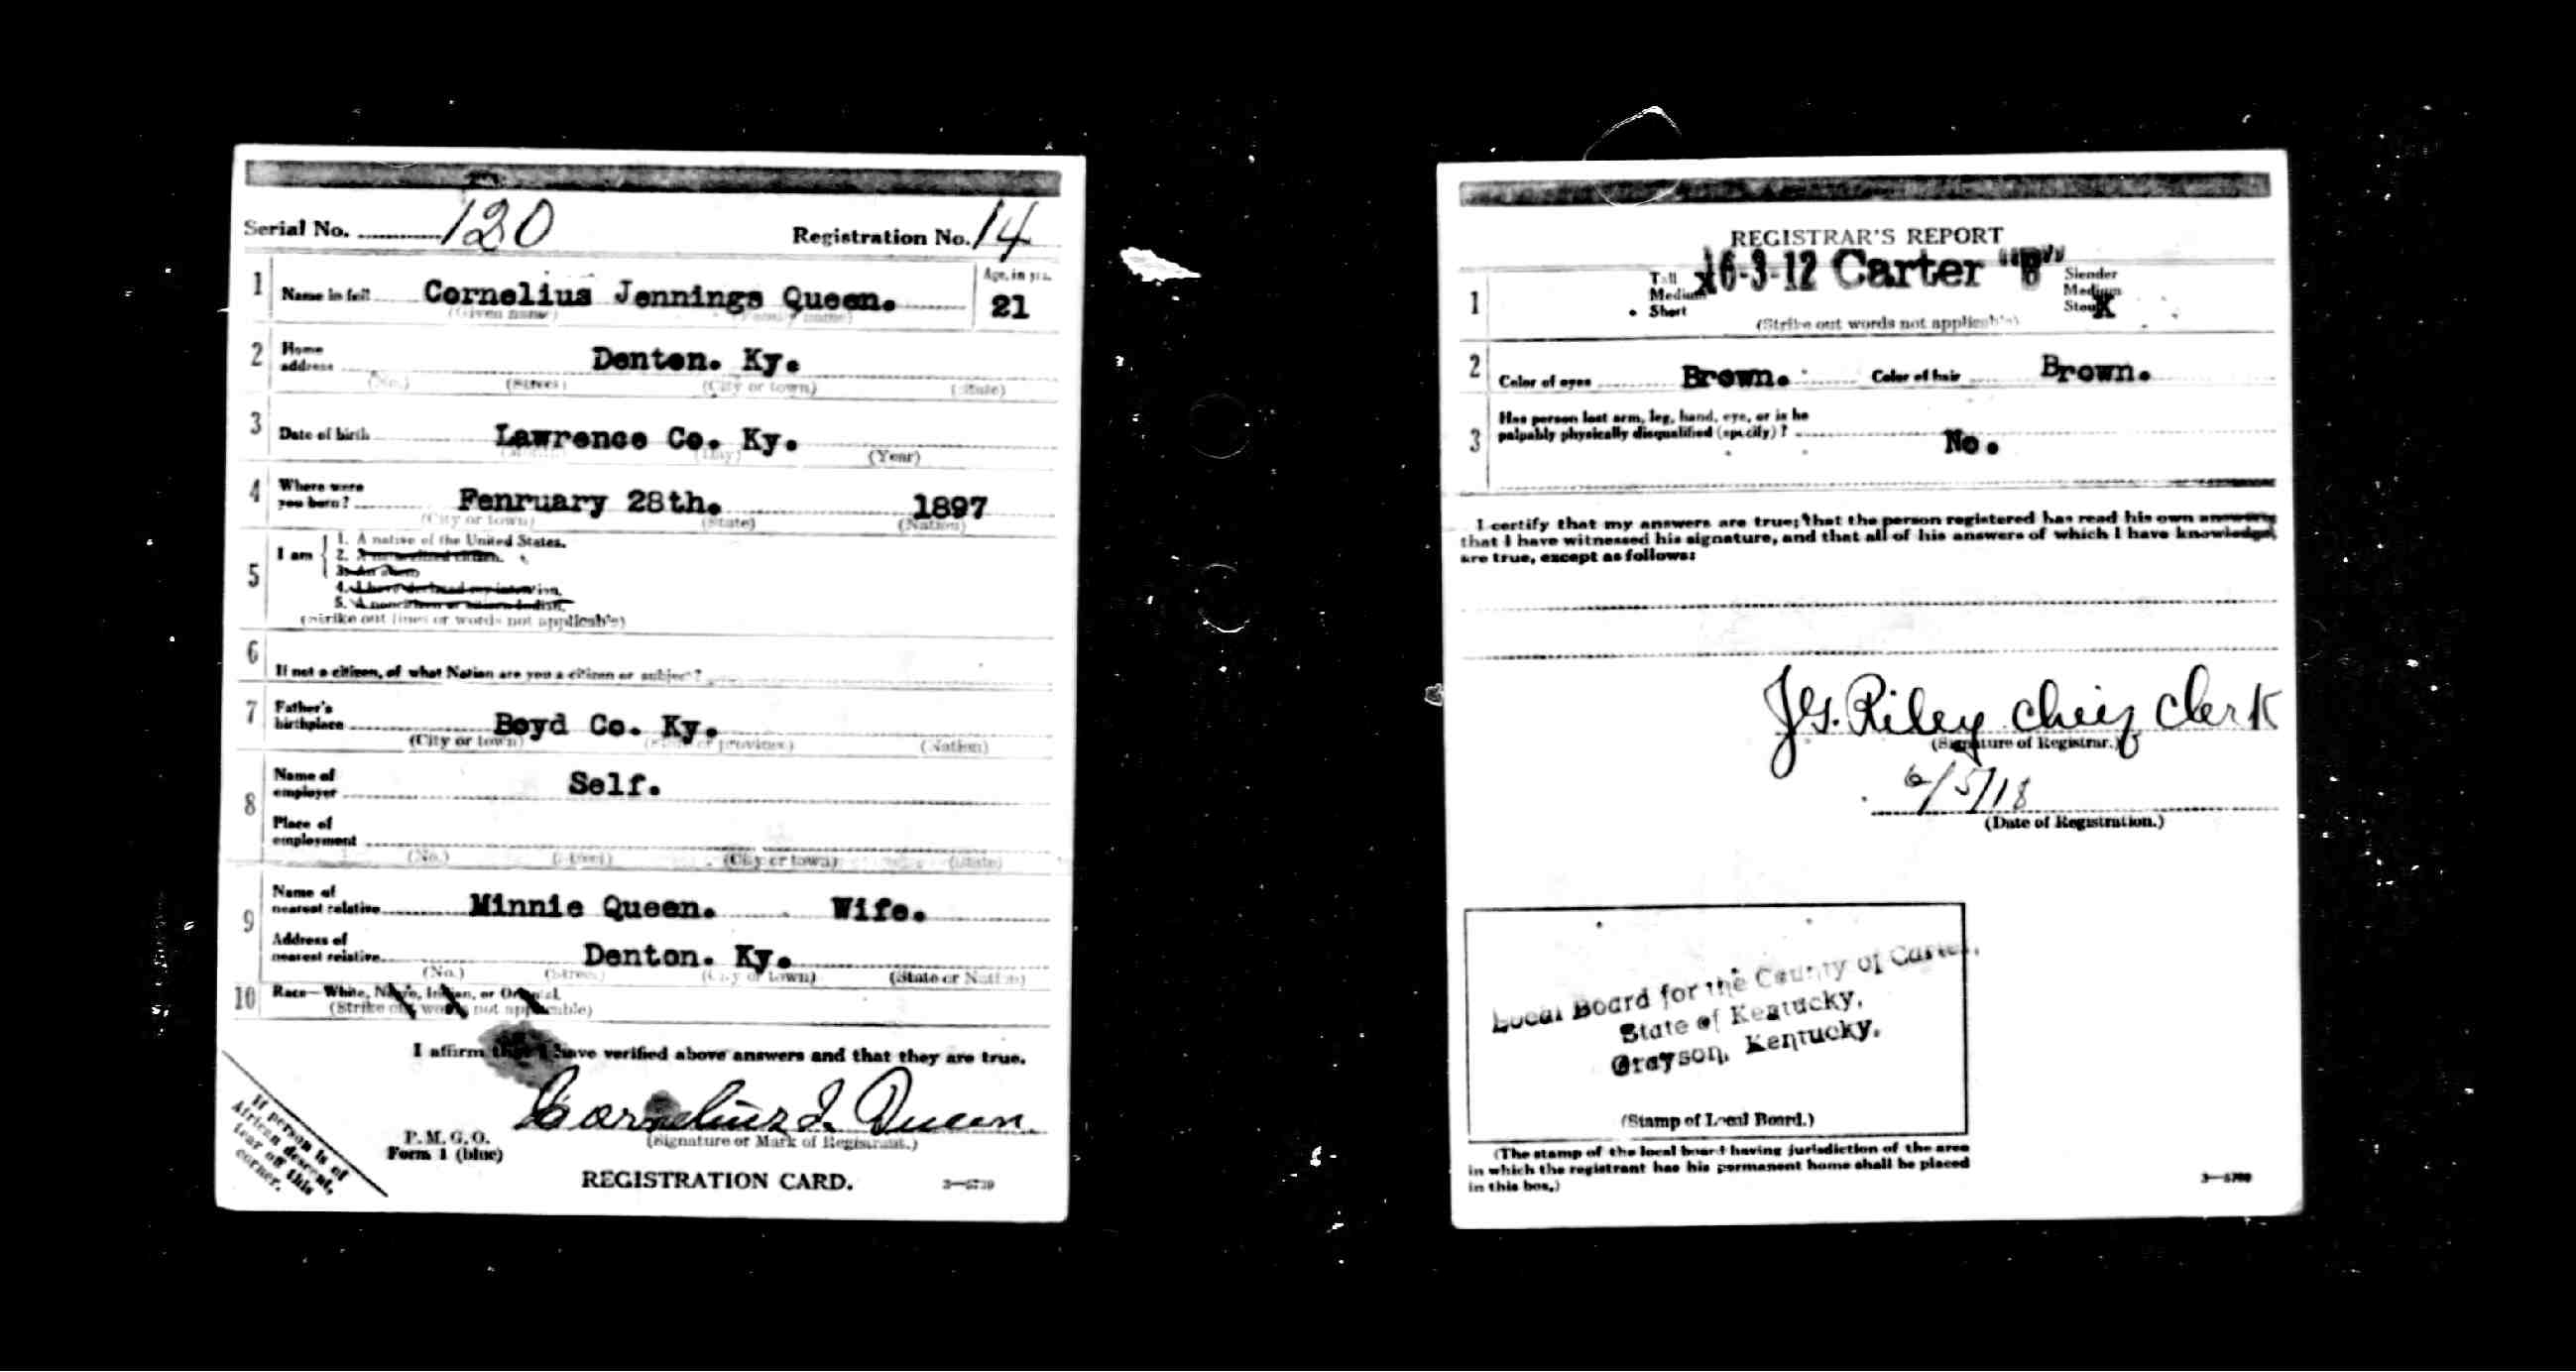 Serial No. 120 Registration No. 14
1 Name in full Cornelius Jennings Queen. Age, in yrs. 21
(Given name) (Family name)
2 Home address Denton. Ky.
(No.) (Street) (City or town) (State)
3 Date of birth Lawrence Co. Ky.
(Month) (Day) (Year)
4 Where were you born? Fenruary 28th. 1897
(City or town) (State) (Nation)
5 I am
1. A native of the United States.
2. A naturalized citizen.
3. An alien
4. I have declared my intention.
5. A noncitizen or citizen Indian.
(Strike out lines or words not applicable)
6 If not a citizen, of what Nation are you a citizen or subject?
7 Father's birthplace Boyd Co. Ky.
(City or town) (State or province) (Nation)
8 Name of employer Self.
Place of employment
(No.) (Street) (City or town) (State)
9 Name of nearest relative Minnie Queen. Wife.
Address of nearest relative Denton. Ky.
(No.) (Street) (City or town) (State or Nation)
10 Race—White, Negro, Indian, or Oriental.
(Strike out words not applicable)
I affirm that I have verified above answers and that they are true.
Cornelius J. Queen
(Signature or Mark of Registrant.)
P. M. G. O.
Form 1 (blue)
REGISTRATION CARD.
If person is of
African descent,
tear off this
corner.
REGISTRAR'S REPORT
16-3-12 Carter "B"
1 Tall X Slender
Medium Medium
Short Stout X
(Strike out words not applicable)
2 Color of eyes Brown. Color of hair Brown.
3 Has person lost arm, leg, hand, eye, or is he
palpably physically disqualified (specify)? No.
I certify that my answers are true; that the person registered has read his own answers
that I have witnessed his signature, and that all of his answers of which I have knowledge
are true, except as follows:
Riley chief clerk
(Signature of Registrar.)
6/5/18
(Date of Registration.)
Local Board for the County of Carter,
State of Kentucky,
Grayson, Kentucky.
(Stamp of Local Board.)
(The stamp of the local board having jurisdiction of the area
in which the registrant has his permanent home shall be placed
in this box.)